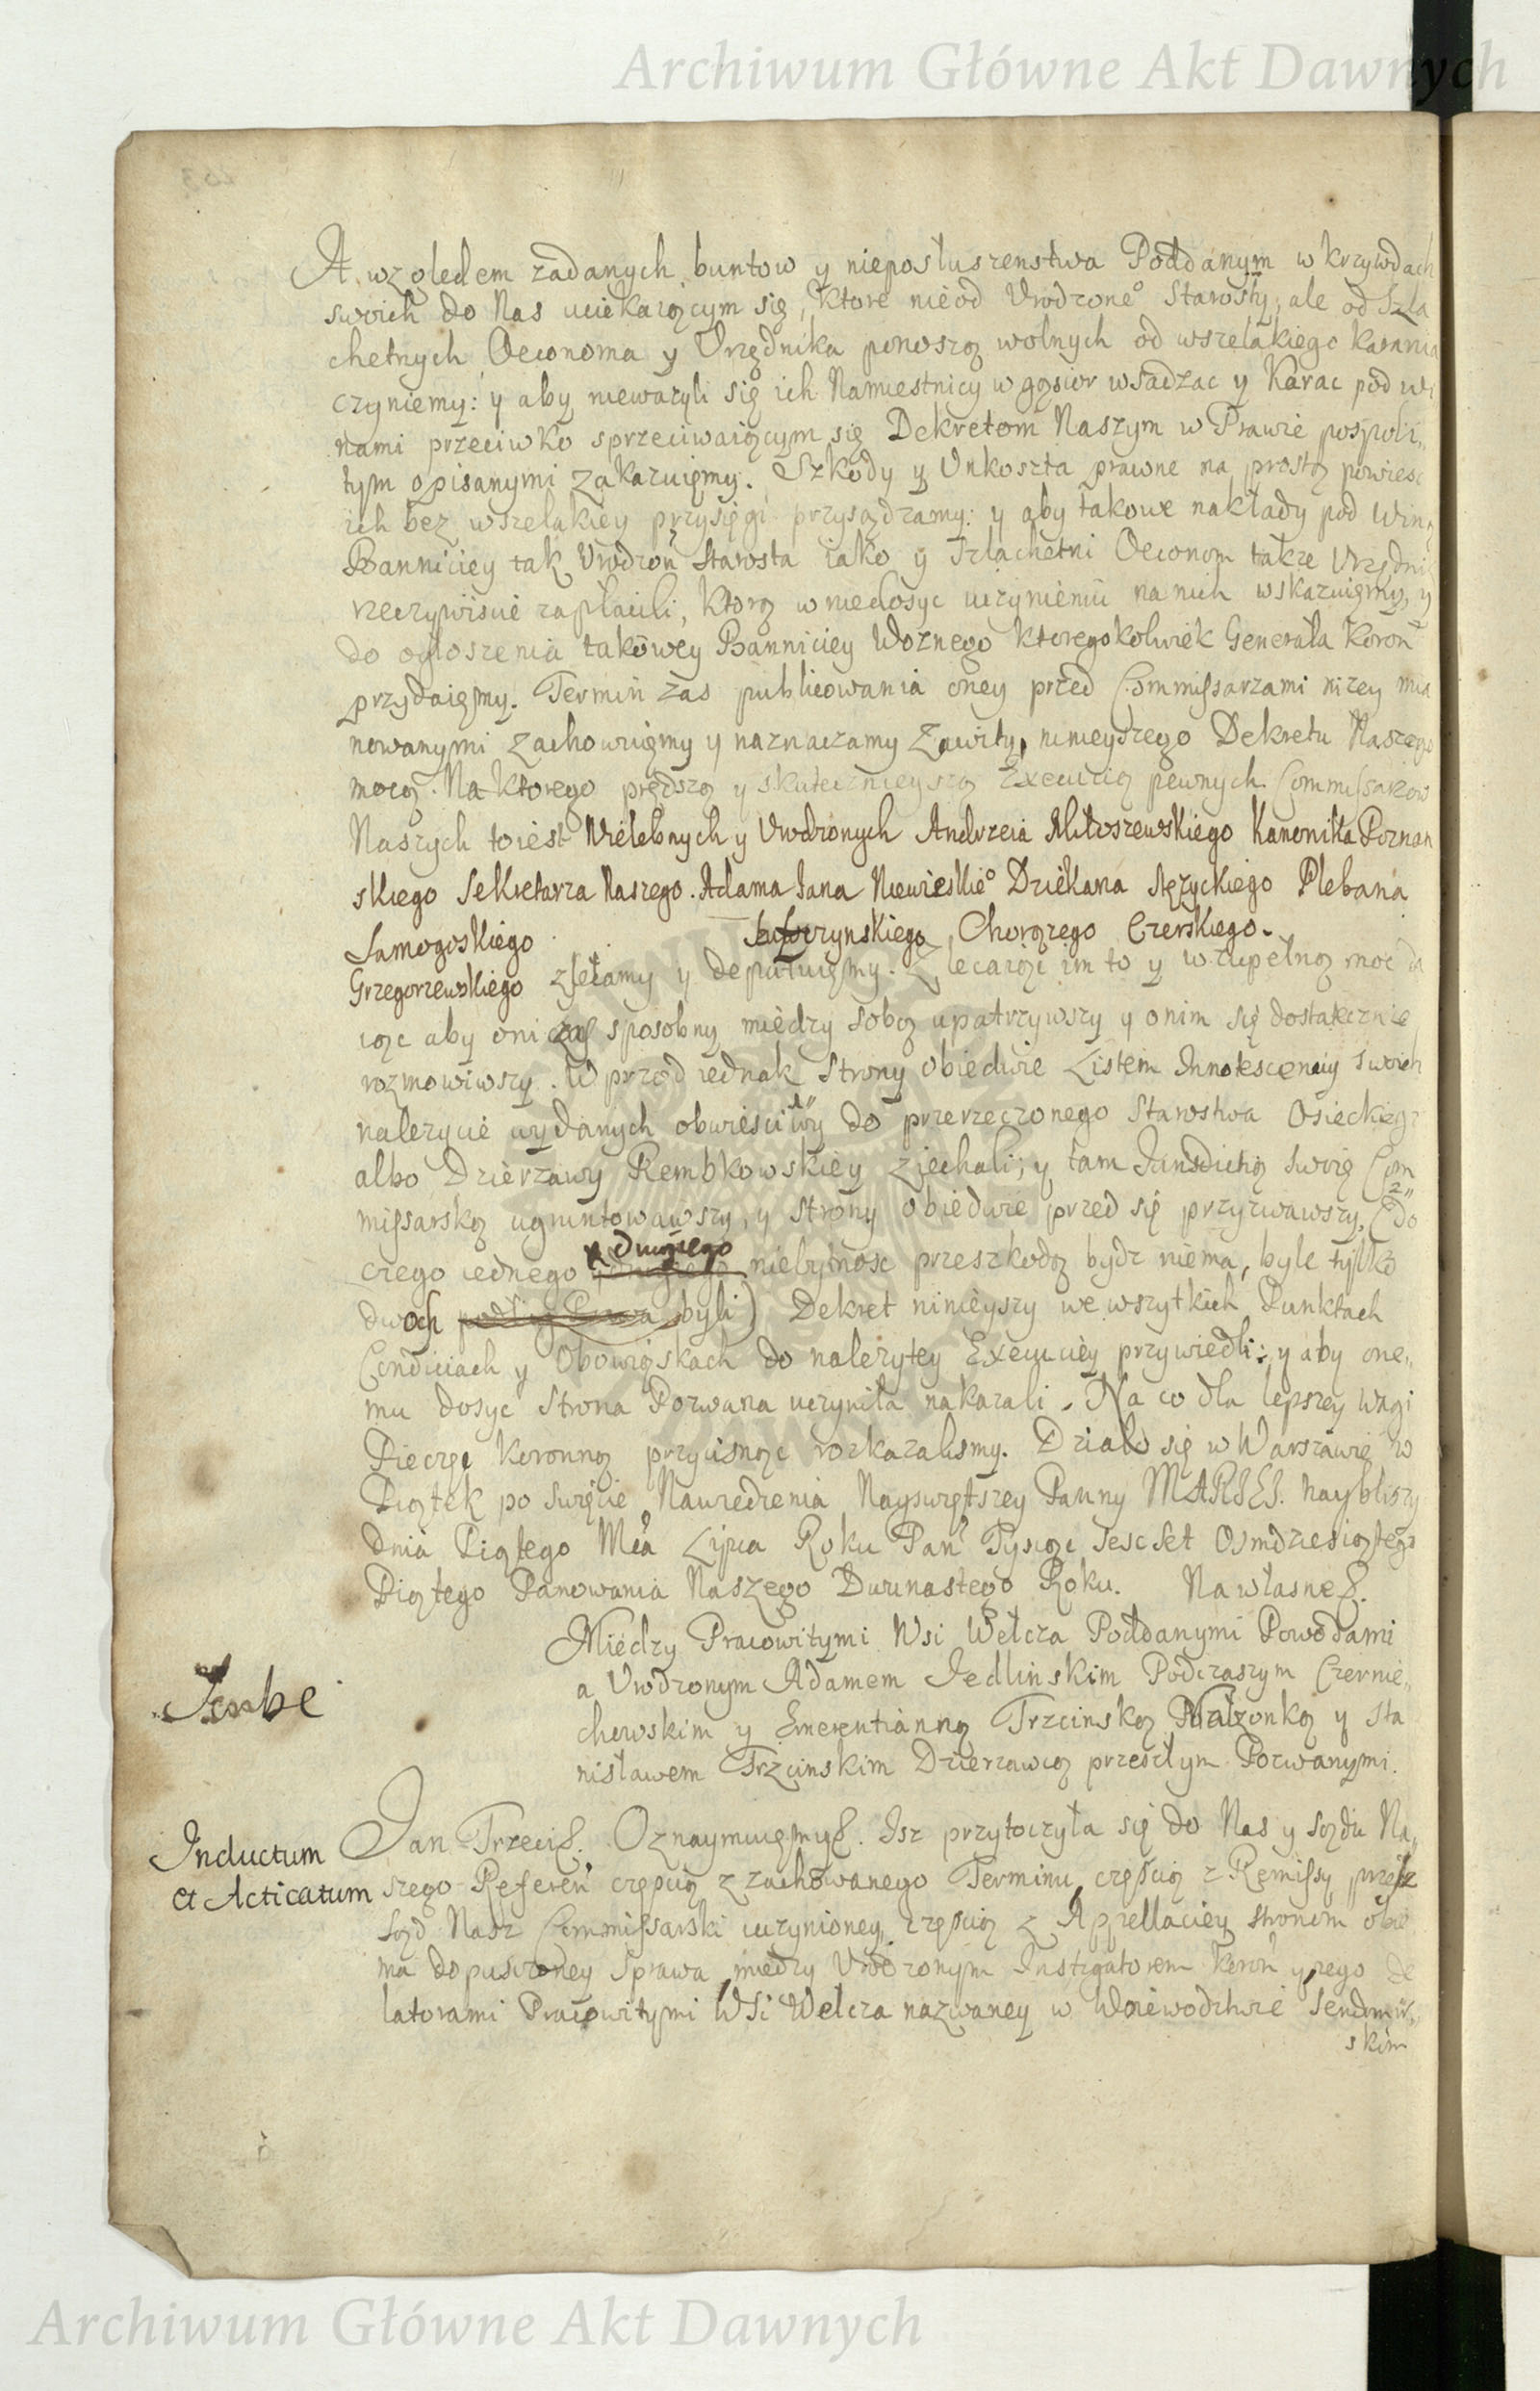 Archiwum Główne Akt Dawnych
A względem zadanych buntow y nieposłuszenstwa Poddanym w krzywdach
swoich do Nas uciekaiącym się, ktore nie od Urodzone° Starosty, ale od Szla
chetnych Oeconoma y Urzędnika ponoszą wolnych od wszelakiego karania
czyniemy: y aby niewazyli się ich Namiestnicy w gąsior wsadzac y Karac pod wi
nami przeciwko sprzeciwaiącym się Dekretom Naszym w Prawie pospoli„
tym opisanymi zakazuięmy. Szkody y Unkoszta prawne na prostą powiesc
ich bez wszelakiey przysięgi przysądzamy: y aby takowe nakłady pod Winą
Banniciey tak Urodzon Starosta iako y szlachetni Oeconom takze Urzędnik
rzeczywiscie zapłacili, Ktorą w niedosyc uczynieniu na nich wskazuięmy, y
do ogłoszenia takowey Banniciey Woznego ktoregokolwiek Generała Koron
przydaięmy. Termin zas publicowania oney przed Commissarzami nizey mia
nowanymi zachowuięmy y naznaczamy Zawity, ninieyszego Dekretu Naszego
mocą. Na ktorego prędszą y skutecznieyszą Execucią pewnych Commissarzow
Naszych toiest Wielebnych y Urodzonych Andrzeia Miłoszewskiego Kanonika Poznan
skiego Sekretarza Naszego. Adama Jana Niewieskie° Dziekana Stęzyckiego Plebana
Samogoskiego Chorązego Czerskiego.
Grzegorzewskiego zsełamy y deputuięmy. Zlecaiąc im to y w zupełną moc da
iąc aby oni czas sposobny między sobą upatrzywszy y onim się dostatecznie
rozmowiwszy. W przod iednak Strony obiedwie Listem Innotescenciy swoich
nalezycie wydanych obwiesciwszy do przerzeczonego Starostwa Osieckiego
albo Dzierzawy Rembkowskiey ziechali; y tam Jurisdictią swoię Com
missarską ugruntowawszy, y Strony obiedwie przed się przyzwawszy, (do
czego iednego y drugiego niebytnosc przeszkodą bydz niema, byle tylko
dwoch byli) Dekret ninieyszy we wszytkich Punktach
Condiciach y Obowiąskach do nalezytey Execuciey przywiedli: y aby one„
mu dosyc Strona Pozwana uczyniła nakazali. Na co dla lepszey wagi
Pieczęc Koronną przycisnąc rozkazalismy. Działo się w Warszawie w
Piątek po Swięcie Nawiedzenia Nayswiętszey Panny MARIEI. nayblizszy
dnia Piątego Mca Lipca Roku Pan Tysiąc Szescset Osmdziesiątego
Piątego Panowania Naszego Dwunastego Roku. Na własne &.
Miedzy Pracowitymi Wsi Wełcza Poddanymi Powodami
a Urodzonym Adamem Jedlinskim Podczaszym Czernie„
chowskim y Emerentianną Trzcinską Małzonką y Sta
nisławem Trzcinskim Dzierzawcą przeszłym Pozwanymi.
Inductum
et Acticatum
Jan Trzeci &. Oznaymuięmy &. Isz przytoczyła się do Nas y sądu Na„
szego Referen częscią z zachowanego Terminu, częscią z Remissy przesz
Sąd Nasz Commissarski uczynioney, częscią z Appellaciey stronom obie
ma dopusczoney Sprawa, miedzy Urodzonym Instigatorem Koron y iego de
latorami Pracowitymi Wsi Welcza nazwaney w Woiewodztwie Sendomir„
skim
Archiwum Główne Akt Dawnych